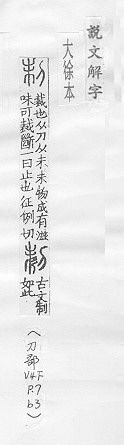 説文解字
大徐本
𣃔裁也从刀从未未物成有滋
味可裁斷一曰止也征例切 古文制
如此
(刀部
V4下
P.7
b3)